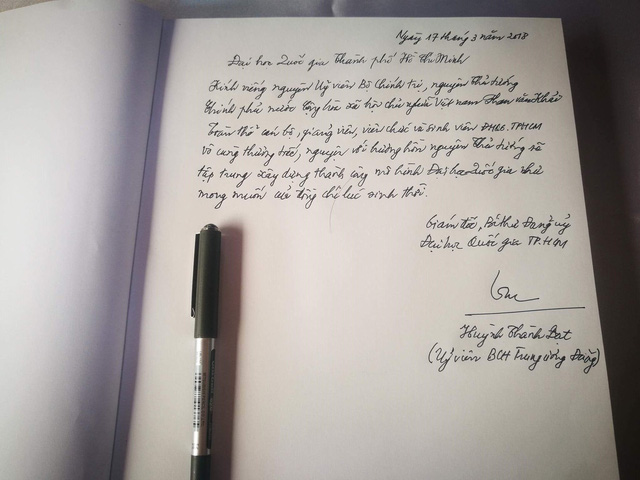 Ngày 17 tháng 3 năm 2018
Đại học Quốc gia Thành phố Hồ Chí Minh
Kính viếng nguyên Uỷ viên Bộ Chính trị, nguyên Thủ tướng
Chính phủ nước Cộng hòa xã hội chủ nghĩa Việt nam Phan Văn Khải
Toàn thể cán bộ, giảng viên, viên chức và sinh viên ĐHQG.TPHCM
vô cùng thương tiếc, nguyện với hương hồn nguyên Thủ tướng sẽ
tập trung xây dựng thành công mô hình Đại học Quốc gia như
mong muốn của đồng chí lúc sinh thời.
Giám đốc, Bí thư Đảng ủy
Đại học Quốc gia TP.HCM
Huỳnh Thành Đạt
(Uỷ viên BCH Trung ương Đảng)